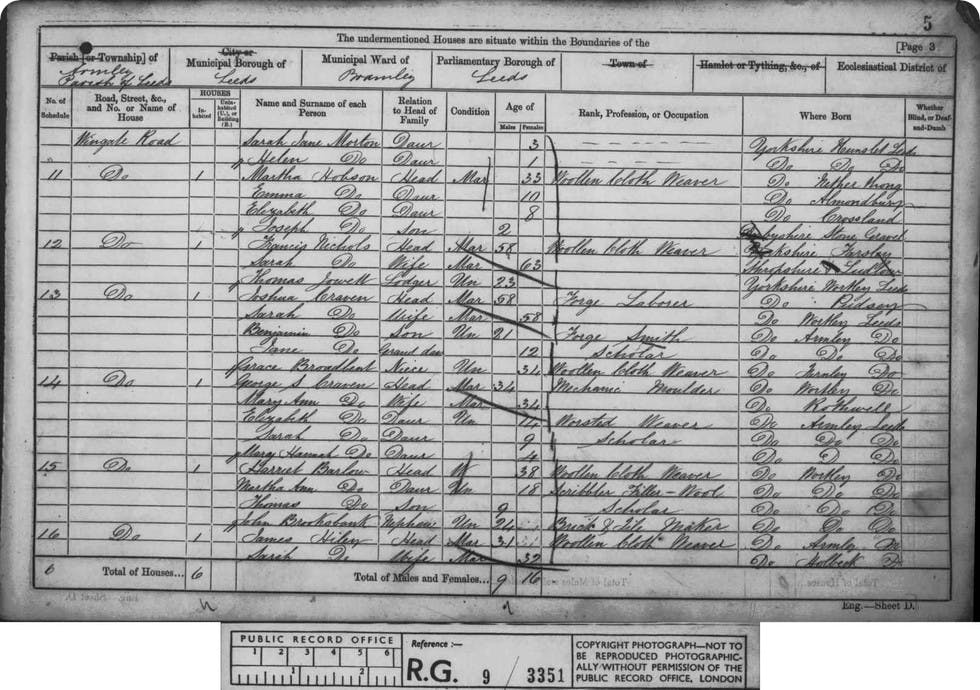 5
The undermentioned Houses are situate within the Boundaries of the
[Page 3
Parish [or Township] of
City or Municipal Borough of
Municipal Ward of
Parliamentary Borough of
Town of
Hamlet or Tything, &c., of
Ecclesiastical District of
Armley
Parish of Leeds
Leeds
Bramley
Leeds
No. of Schedule
Road, Street, &c., and No. or Name of House
HOUSES
Inhabited
Uninhabited (U.), or Building (B.)
Name and Surname of each Person
Relation to Head of Family
Condition
Age of
Males
Females
Rank, Profession, or Occupation
Where Born
Whether Blind, or Deaf-and-Dumb
Wingate Road Sarah Jane Morton Daur 3 Yorkshire Hunslet Leeds
Helen Do Daur 1 Do Do Do
11 Do 1 Martha Hobson Head Mar 33 Woollen Cloth Weaver Do Nether Thong
Emma Do Daur 10 Do Almondbury
Elizabeth Do Daur 8 Do Crossland
Joseph Do Son 2 Derbyshire Stone Gravel
12 Do 1 Francis Nichols Head Mar 58 Woollen Cloth Weaver Yorkshire Farsley
Sarah Do Wife Mar 63 Shropshire Ludlow
Thomas Jowett Lodger Un 23 Yorkshire Wortley Leeds
13 Do 1 Joshua Craven Head Mar 58 Forge Laborer Do Pudsey
Sarah Do Wife Mar 58 Do Wortley Leeds
Benjamin Do Son Un 21 Forge Smith Do Armley Do
Jane Do Grand dau 12 Scholar Do Do Do
Grace Broadbent Niece Un 34 Woollen Cloth Weaver Do Farnley Do
14 Do 1 George S Craven Head Mar 34 Mechanic Moulder Do Wortley Do
Mary Ann Do Wife Mar 34 Do Rothwell
Elizabeth Do Daur Un 14 Worsted Weaver Do Armley Leeds
Sarah Do Daur 9 Scholar Do Do Do
Mary Hannah Do Daur 4 Do D Do
15 Do 1 Harriet Barlow Head W 38 Woollen Cloth Weaver Do Wortley Do
Martha Ann Do Daur Un 18 Scribbler Filler-Wool Do Do Do
Thomas Do Son 9 Scholar Do Do Do
John Brooksbank Nephew Un 24 Brick & Tile Maker Do Do Do
16 Do 1 James Hiley Head Mar 31 Woollen Cloth Weaver Do Armley Do
Sarah Do Wife Mar 32 Do Holbeck Do
6 Total of Houses... 6 Total of Males and Females... 9 16
Eng.—Sheet D.
PUBLIC RECORD OFFICE
1 2 3 4 5 6
1 2
Reference :—
R.G. 9 / 3351
COPYRIGHT PHOTOGRAPH—NOT TO
BE REPRODUCED PHOTOGRAPHIC-
ALLY WITHOUT PERMISSION OF THE
PUBLIC RECORD OFFICE, LONDON